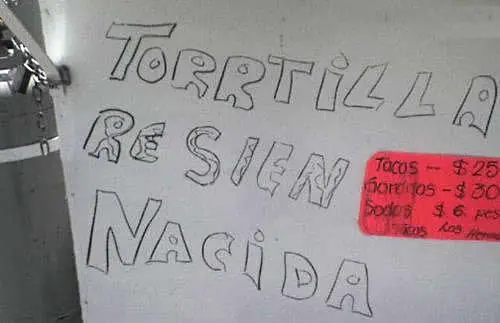 TORRTiLLA
RESIEN
NACiDA
Tacos - $ 25
Gorditas - $ 30
Sodas $ 6 pes
Tacos Los